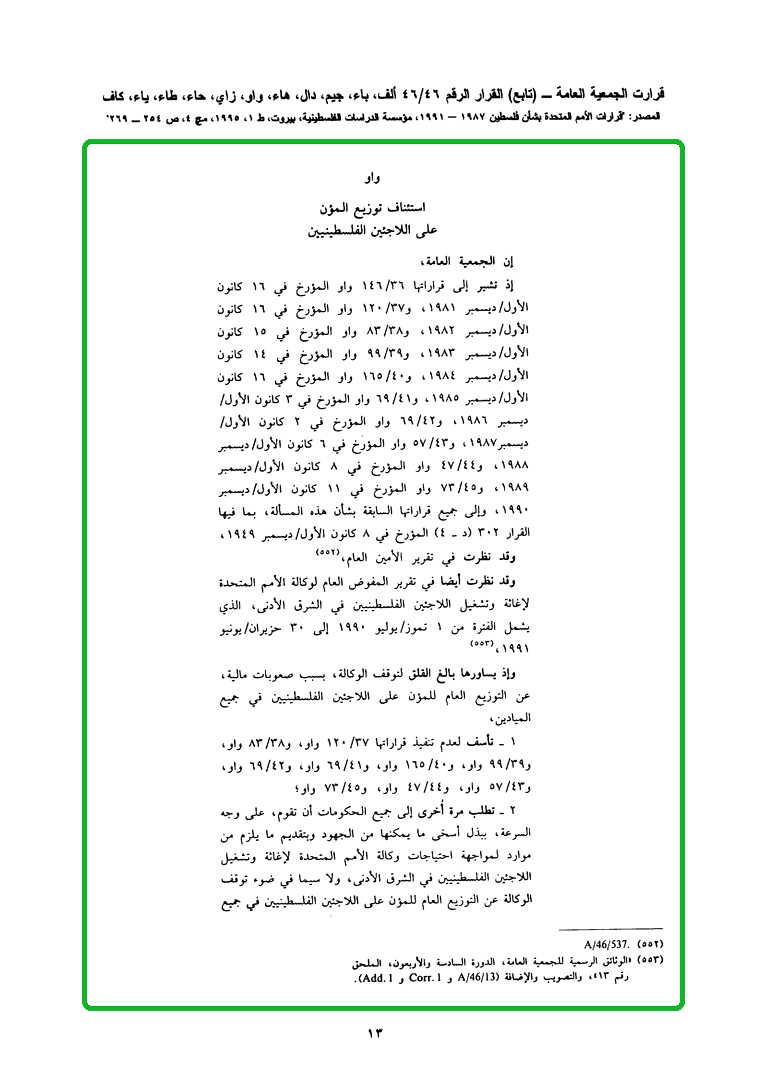 قرارت الجمعية العامة ــ (تابع) القرار الرقم ٤٦/٤٦ ألف، باء، جيم، دال، هاء، واو، زاي، حاء، طاء، ياء، كاف
المصدر: "قرارات الأمم المتحدة بشأن فلسطين ١٩٨٧ ــ ١٩٩١، مؤسسة الدراسات الفلسطينية، بيروت، ط ١، ١٩٩٥، مج ٤، ص ٢٥٤ ــ ٢٦٩"
واو
استئناف توزيع المؤن
على اللاجئين الفلسطينيين
إن الجمعية العامة،
إذ تشير إلى قراراتها ١٤٦/٣٦ واو المؤرخ في ١٦ كانون
الأول/ديسمبر ١٩٨١، و١٢٠/٣٧ واو المؤرخ في ١٦ كانون
الأول/ديسمبر ١٩٨٢، و٨٣/٣٨ واو المؤرخ في ١٥ كانون
الأول/ديسمبر ١٩٨٣، و٩٩/٣٩ واو المؤرخ في ١٤ كانون
الأول/ديسمبر ١٩٨٤، و١٦٥/٤٠ واو المؤرخ في ١٦ كانون
الأول/ديسمبر ١٩٨٥، و٦٩/٤١ واو المؤرخ في ٣ كانون الأول/
ديسمبر ١٩٨٦، و٦٩/٤٢ واو المؤرخ في ٢ كانون الأول/
ديسمبر١٩٨٧، و٥٧/٤٣ واو المؤرخ في ٦ كانون الأول/ديسمبر
١٩٨٨، و٤٧/٤٤ واو المؤرخ في ٨ كانون الأول/ديسمبر
١٩٨٩، و٧٣/٤٥ واو المؤرخ في ١١ كانون الأول/ديسمبر
١٩٩٠، وإلى جميع قراراتها السابقة بشأن هذه المسألة، بما فيها
القرار ٣٠٢ (د ـ ٤) المؤرخ في ٨ كانون الأول/ديسمبر ١٩٤٩،
وقد نظرت في تقرير الأمين العام،(٥٥٢)
وقد نظرت أيضا في تقرير المفوض العام لوكالة الأمم المتحدة
لإغاثة وتشغيل اللاجئين الفلسطينيين في الشرق الأدنى، الذي
يشمل الفترة من ١ تموز/يوليو ١٩٩٠ إلى ٣٠ حزيران/يونيو
١٩٩١،(٥٥٣)
وإذ يساورها بالغ القلق لتوقف الوكالة، بسبب صعوبات مالية،
عن التوزيع العام للمؤن على اللاجئين الفلسطينيين في جميع
الميادين،
١ ـ تأسف لعدم تنفيذ قراراتها ١٢٠/٣٧ واو، و٨٣/٣٨ واو،
و٩٩/٣٩ واو، و١٦٥/٤٠ واو، و٦٩/٤١ واو، و٦٩/٤٢ واو،
و٥٧/٤٣ واو، و٤٧/٤٤ واو، و٧٣/٤٥ واو؛
٢ ـ تطلب مرة أُخرى إلى جميع الحكومات أن تقوم، على وجه
السرعة، ببذل أسخى ما يمكنها من الجهود وبتقديم ما يلزم من
موارد لمواجهة احتياجات وكالة الأمم المتحدة لإغاثة وتشغيل
اللاجئين الفلسطينيين في الشرق الأدنى، ولا سيما في ضوء توقف
الوكالة عن التوزيع العام للمؤن على اللاجئين الفلسطينيين في جميع
(٥٥٢) A/46/537.
(٥٥٣) «الوثائق الرسمية للجمعية العامة، الدورة السادسة والأربعون، الملحق
رقم ١٣»، والتصويب والإضافة (A/46/13 و Corr. 1 و Add. 1).
١٣